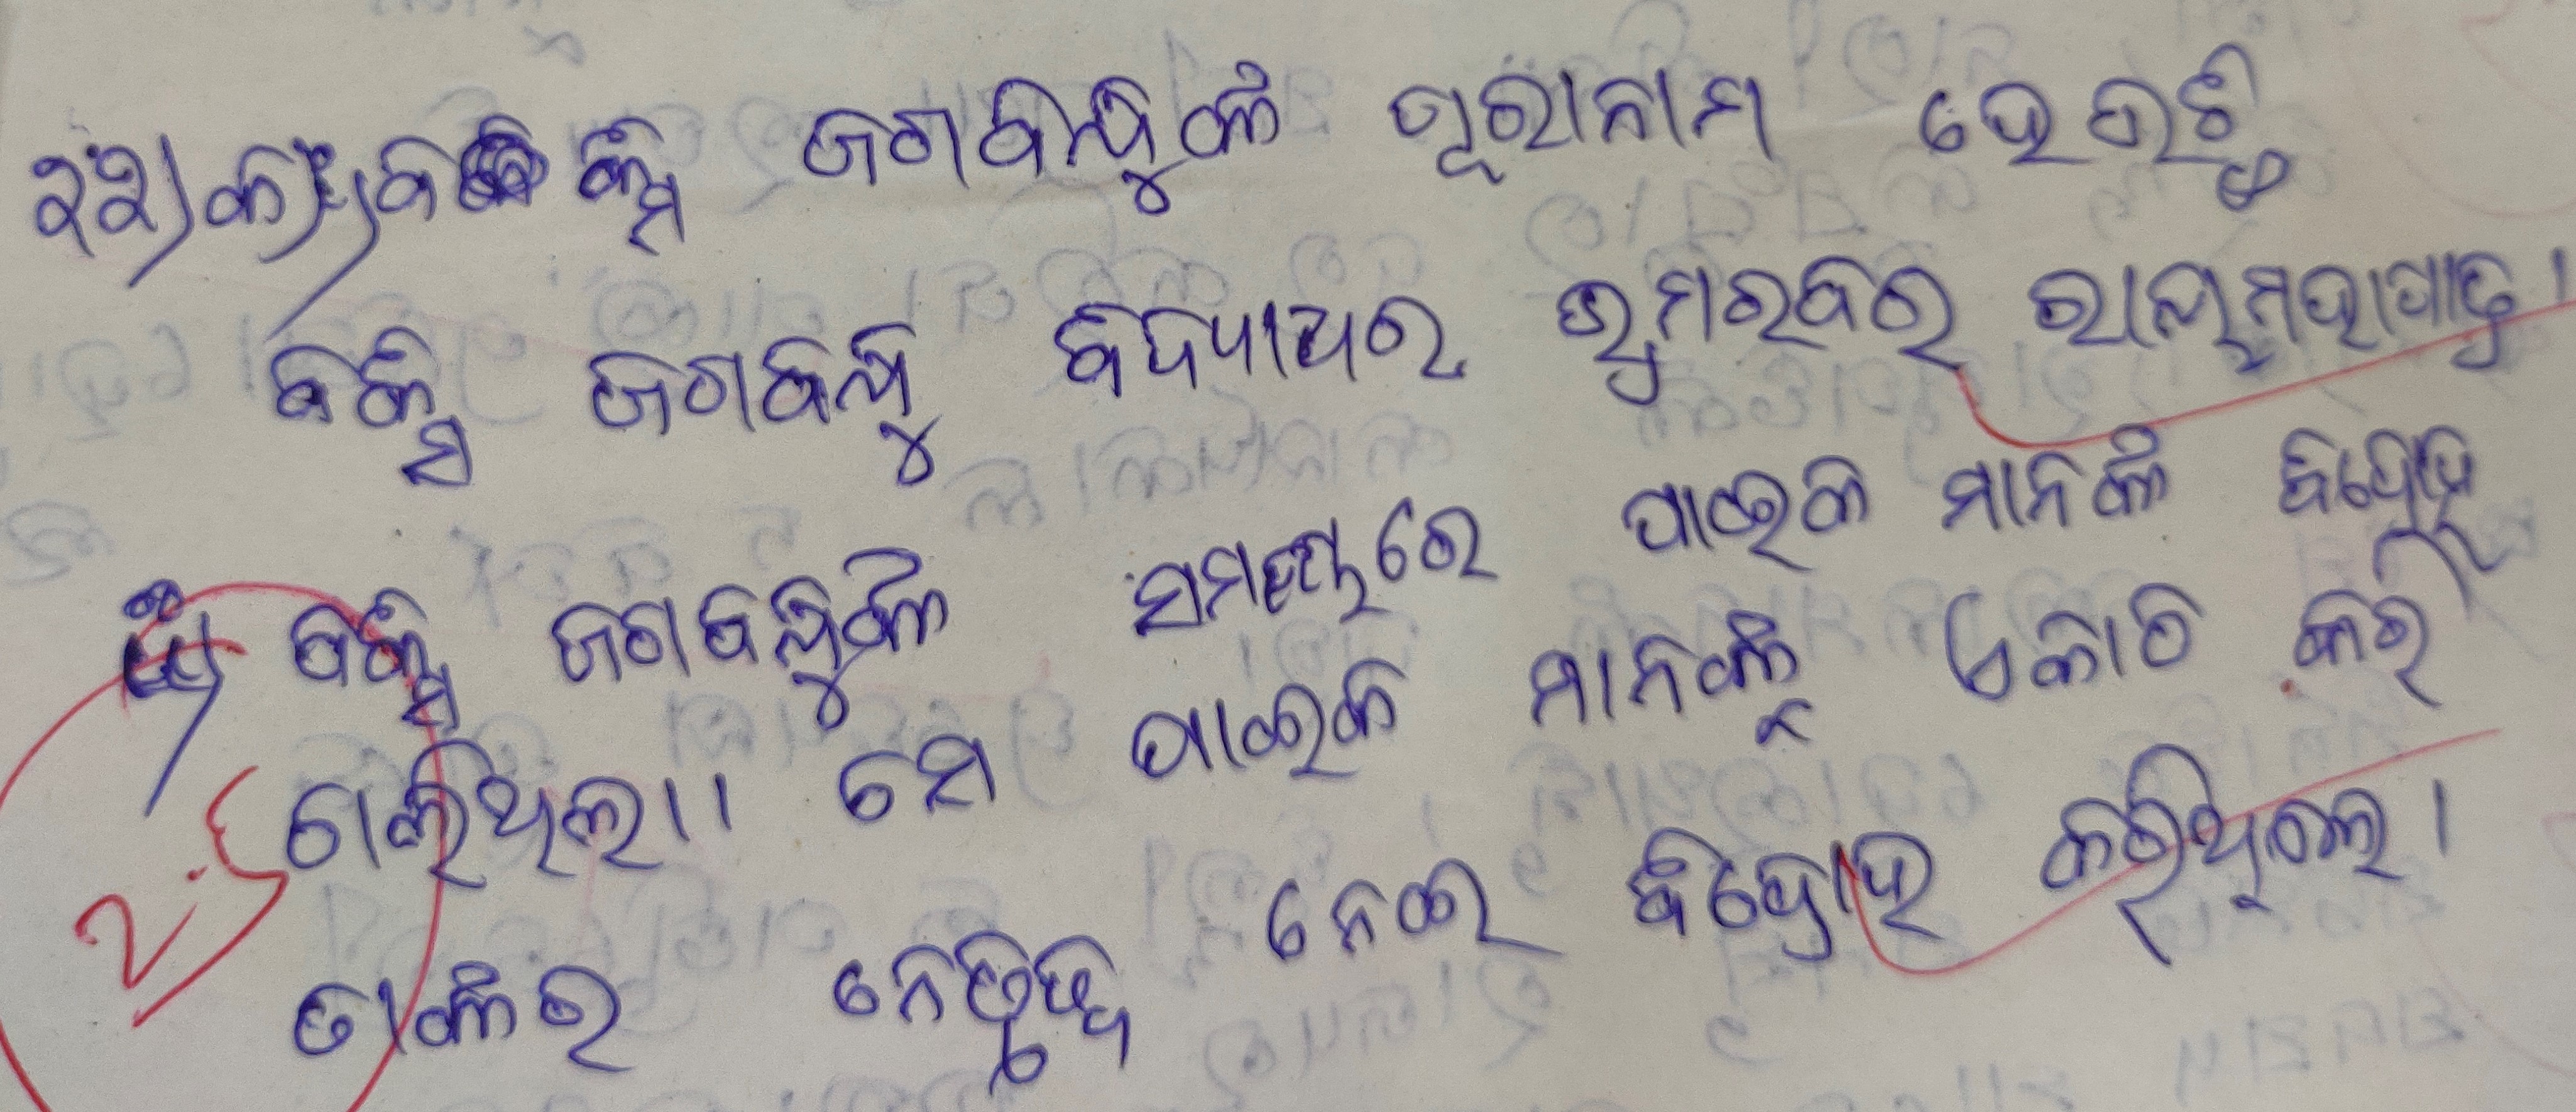 ୨୨) କ) ବକ୍ସି ଜଗବନ୍ଧୁଙ୍କ ପୂରାନାମ ହେଉଛି
ବକ୍ସି ଜଗବନ୍ଧୁ ବିଦ୍ୟାଧର ଭ୍ରମରବର ରାୟମହାପାତ୍ର ।
ବକ୍ସି ଜଗବନ୍ଧୁଙ୍କ ସମୟରେ ପାଇକ ମାନଙ୍କ ବିଦ୍ରୋହ
ଚାଲିଥିଲା । ସେ ପାଇକ ମାନଙ୍କୁ ଏକାଠି କରି
ତାଙ୍କର ନେତୃତ୍ୱ ନେଇ ବିଦ୍ରୋହ କରିଥିଲେ ।